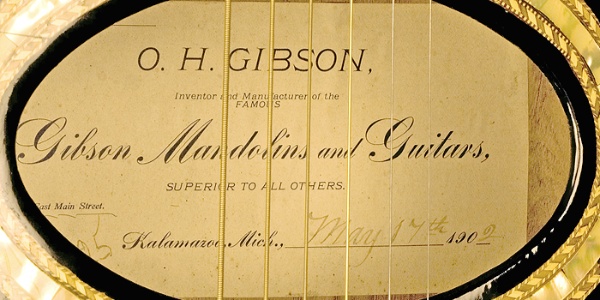 O. H. GIBSON,
Inventor and Manufacturer of the
FAMOUS
Gibson Mandolins and Guitars,
SUPERIOR TO ALL OTHERS.
East Main Street.
Kalamazoo, Mich., May 17th 1902